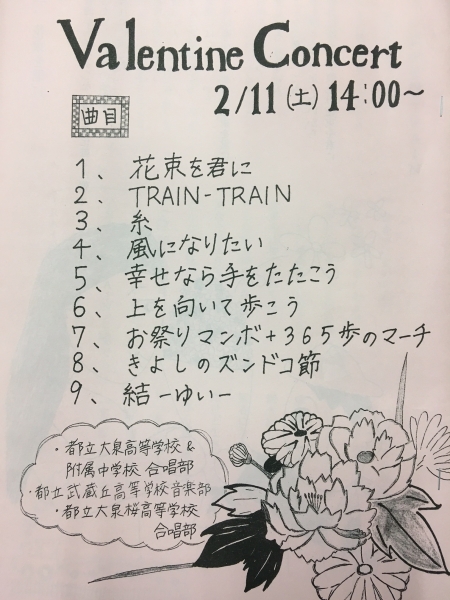 Valentine Concert
2/11(土)14:00~
曲目
1、花束を君に
2、TRAIN-TRAIN
3、糸
4、風になりたい
5、幸せなら手をたたこう
6、上を向いて歩こう
7、お祭りマンボ+365歩のマーチ
8、きよしのズンドコ節
9、結ーゆいー
・都立大泉高等学校&
附属中学校 合唱部
・都立武蔵丘高等学校音楽部
・都立大泉桜高等学校
合唱部